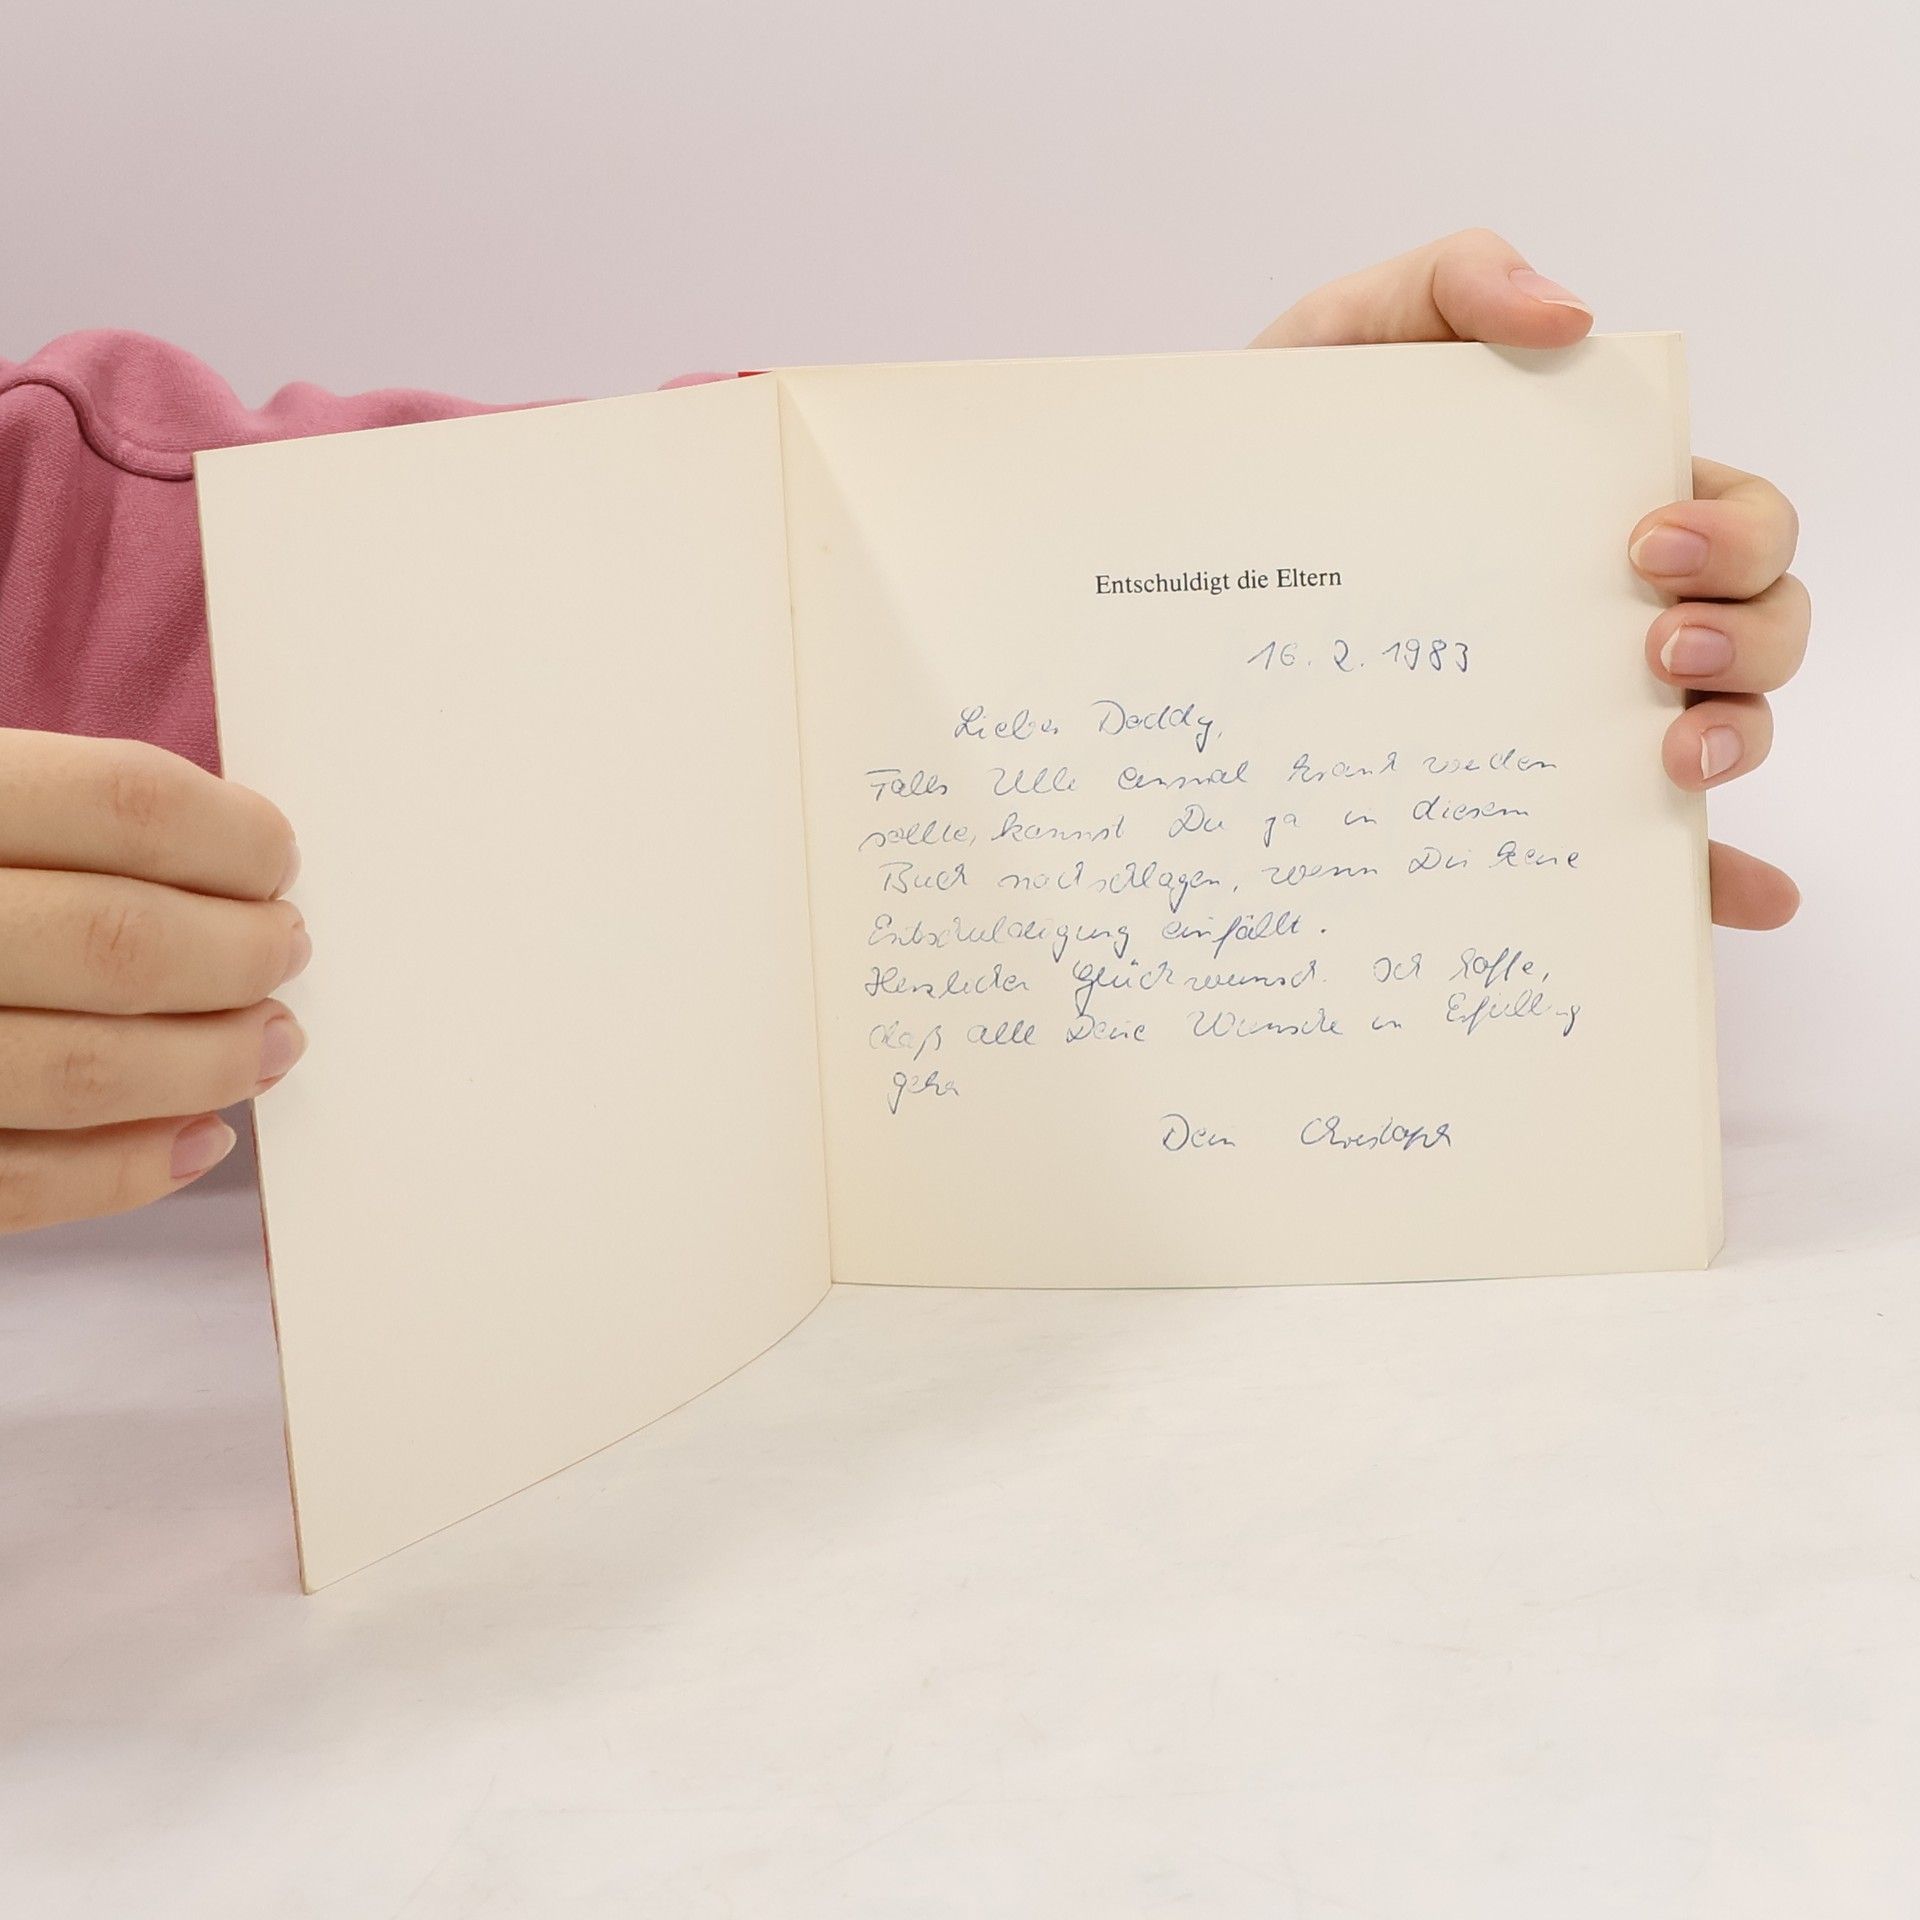 Entschuldigt die Eltern
16. 2. 1983
Lieber Daddy,
Falls Ulle einmal krank werden
sollte, kannst Du ja in diesem
Buch nachschlagen, wenn Dir keine
Entschuldigung einfällt.
Herzlichen Glückwunsch. Ich hoffe,
daß alle Deine Wünsche in Erfüllung
gehen
Dein Christoph